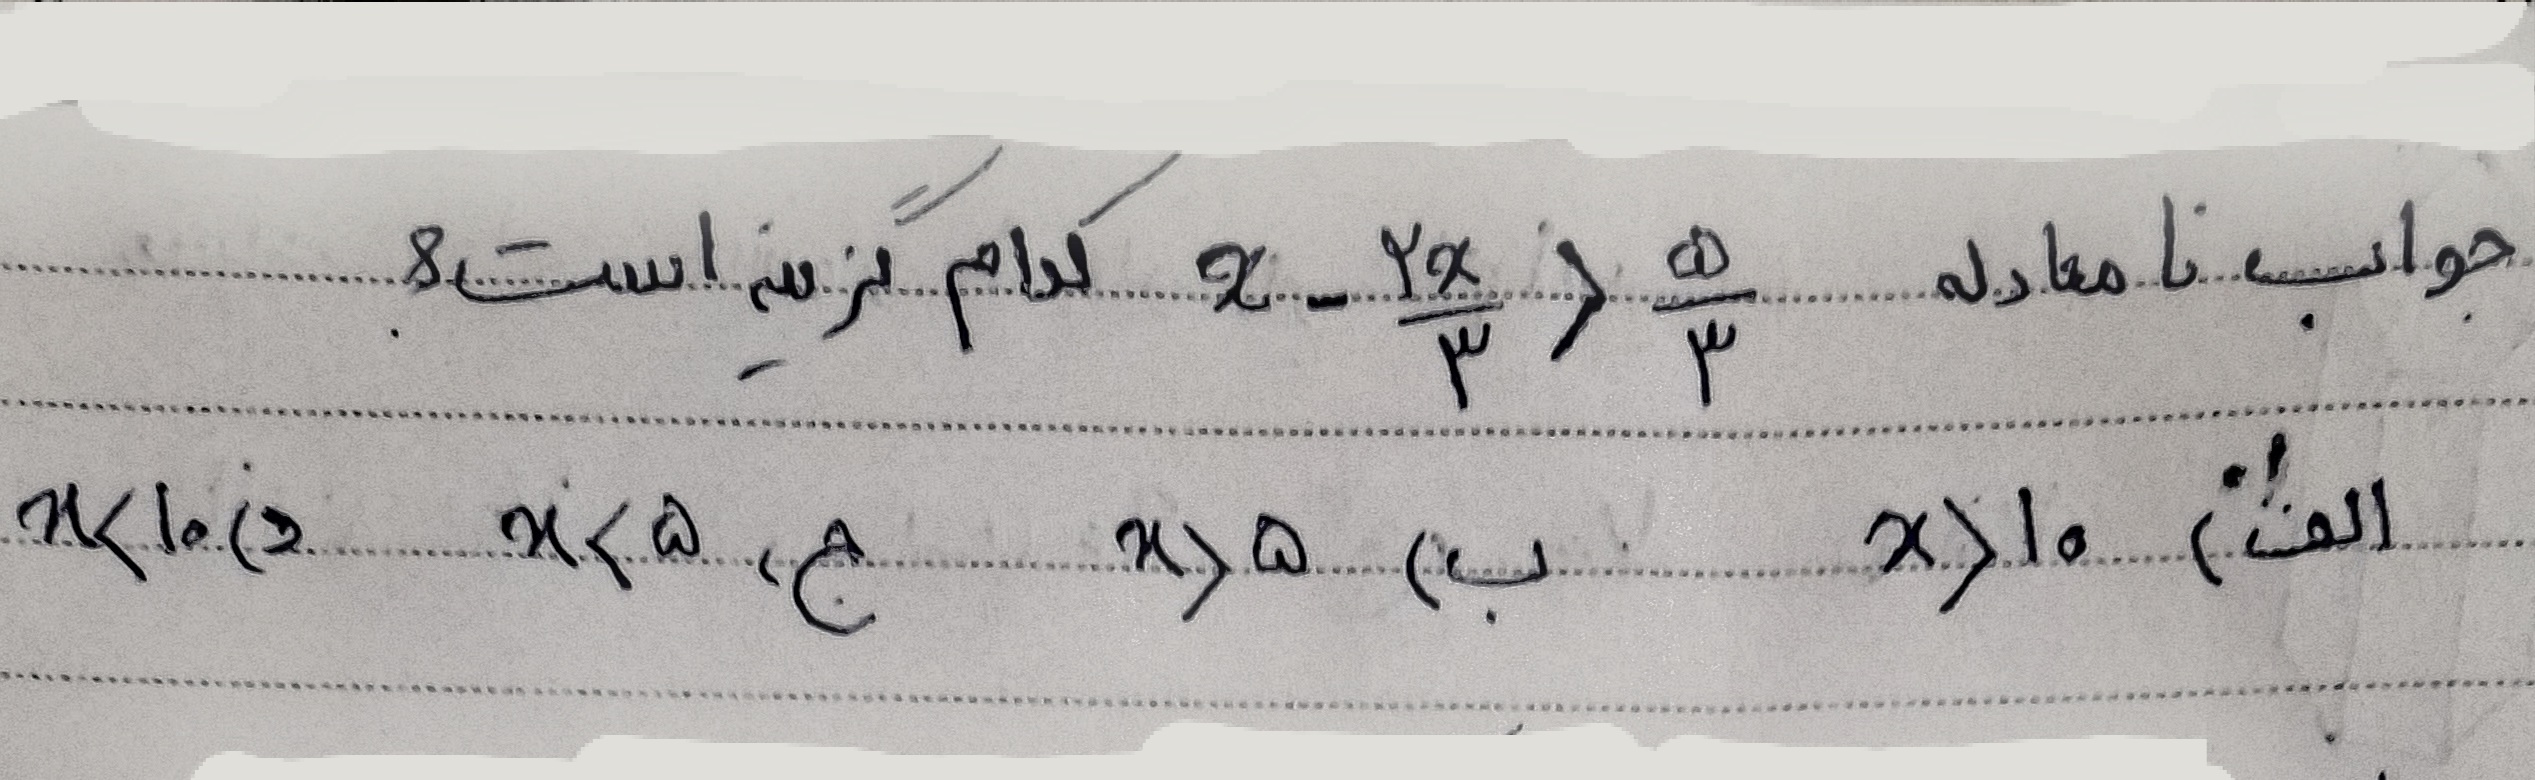 جواب نا معادله x - ۲x/۳ > ۵/۳ کدام گزینه است؟
الف) x > ۱۰ ب) x > ۵ ج) x < ۵ د) x < ۱۰